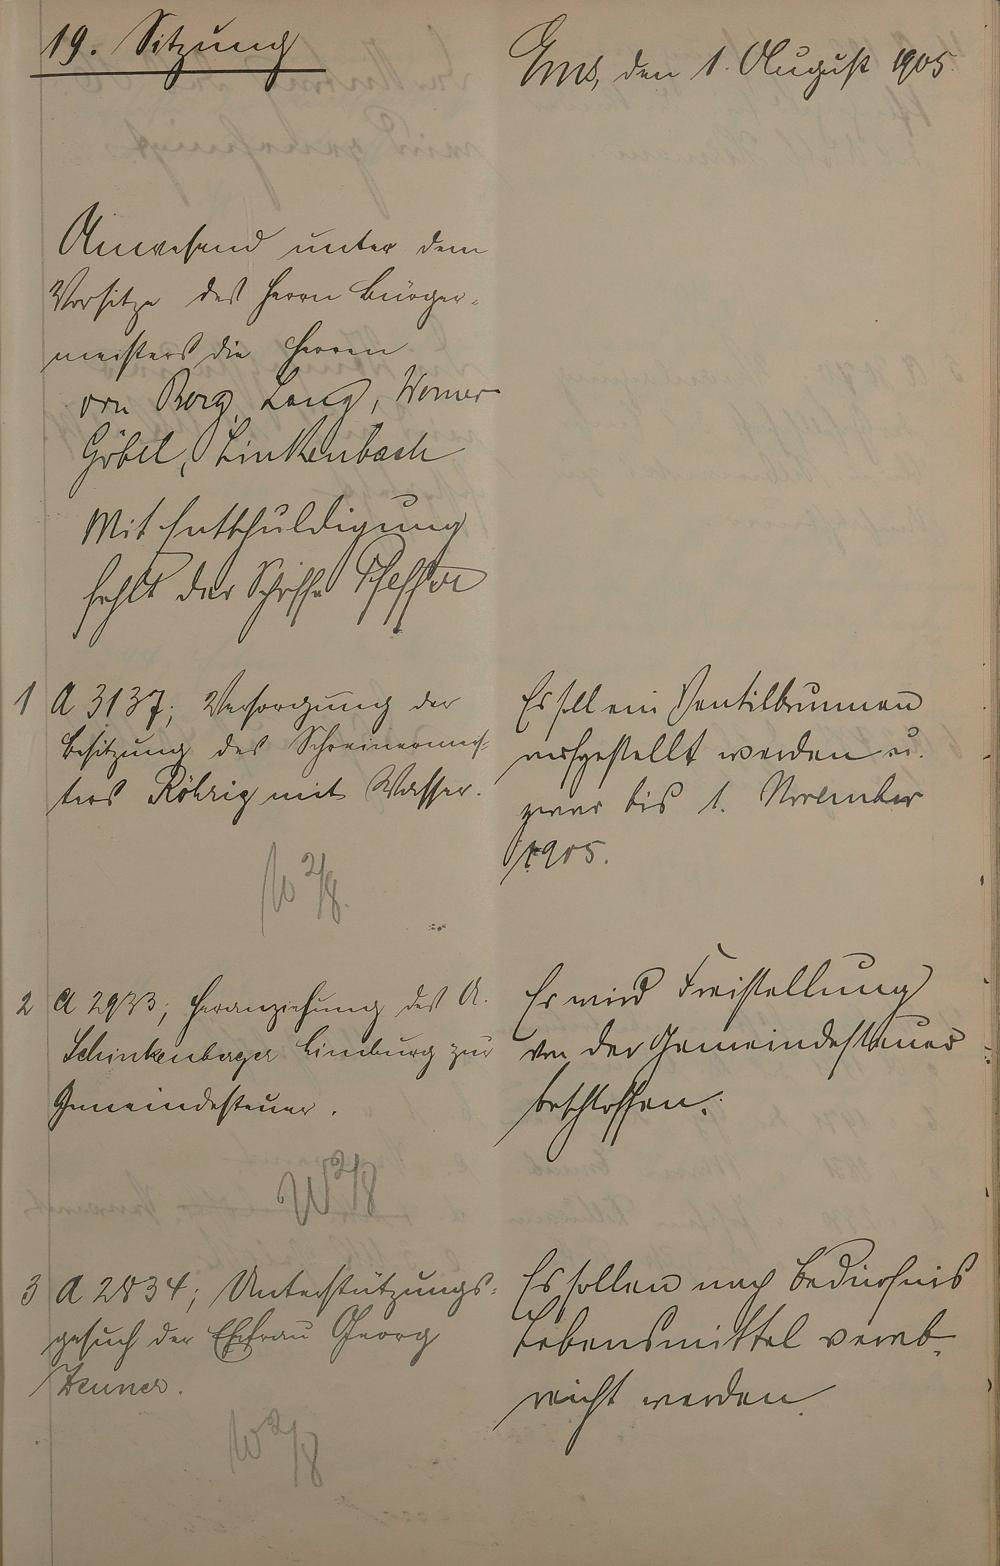 19. Sitzung
Ems, den 1. August 1905.
Anwesend unter dem
Vorsitze des Herrn Bürger-
meisters die Herren
von Borg, Lang, Werner
Göbel, Linkenbach
Mit Entschuldigung
fehlt der Schöffe Pfeffer
1 A 3137; Versorgung der
Besitzung des Schreinermeis-
ters Röhrig mit Wasser.
Es soll ein Ventilbrunnen
aufgestellt werden u.
zwar bis 1. November
1905.
W 2/8.
2 A 2933; Heranziehung des A.
Schinkenberger Limburg zur
Gemeindesteuer.
Es wird Freistellung
von der Gemeindesteuer
beschlossen.
W 2/8
3 A 2834; Unterstützungs-
gesuch der Ehefrau Georg
Zenner.
Es sollen nach Bedürfnis
Lebensmittel verab-
reicht werden.
W 2/8